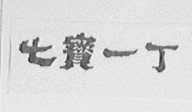 七寶一丁